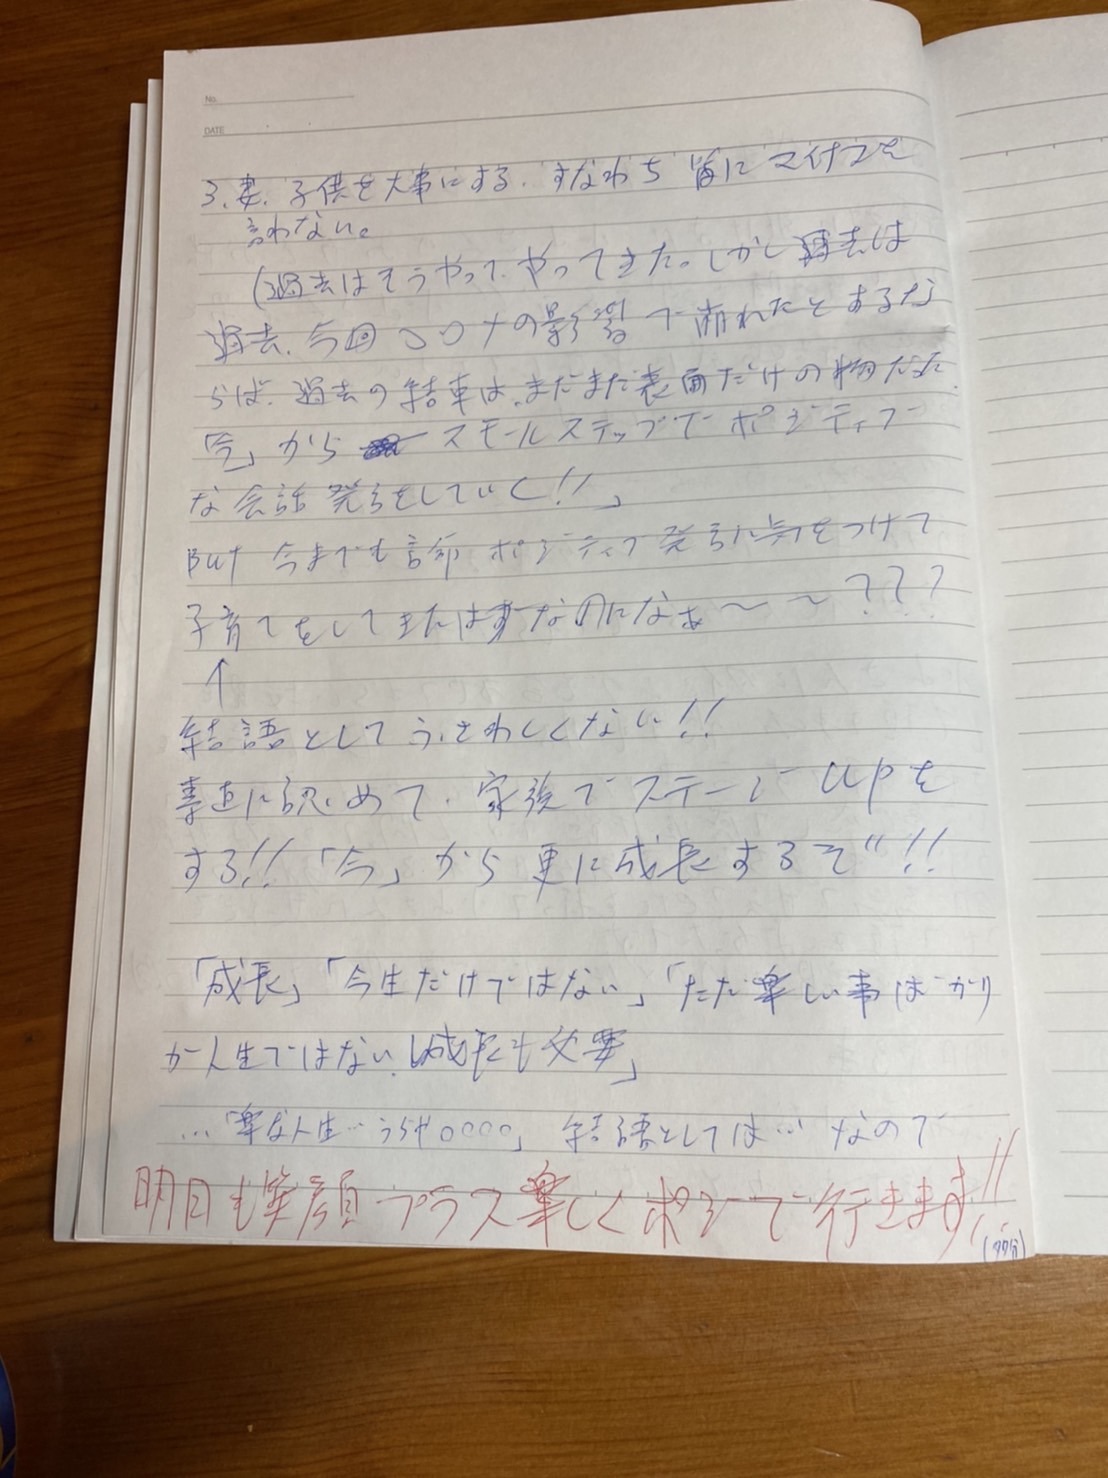 No.
DATE
3.妻.子供を大事にする.すなわち 皆にマイナスを
言わない。
(過去はそうやって、やってきた。しかし過去は
過去.今回コロナの影響で崩れたとするな
らば.過去の結果は、まだまだ表面だけの物だった.
「今」から スモールステップで ポジティブ
な会話 発言をしていく!!」
But 今までも ポジティブ発言に気をつけて
子育てをしてきたはずなのになぁ〜〜???
↑
結語としてふさわしくない!!
素直に認めて.家族でステージupを
する!!「今」から更に成長するぞ!!
「成長」「今生だけではない」「ただ楽しい事ばかり
が人生ではない.成長も必要」
…「楽な人生… 〇〇〇〇」結語としては… なので
明日も笑顔プラス楽しくポジで行きます!!